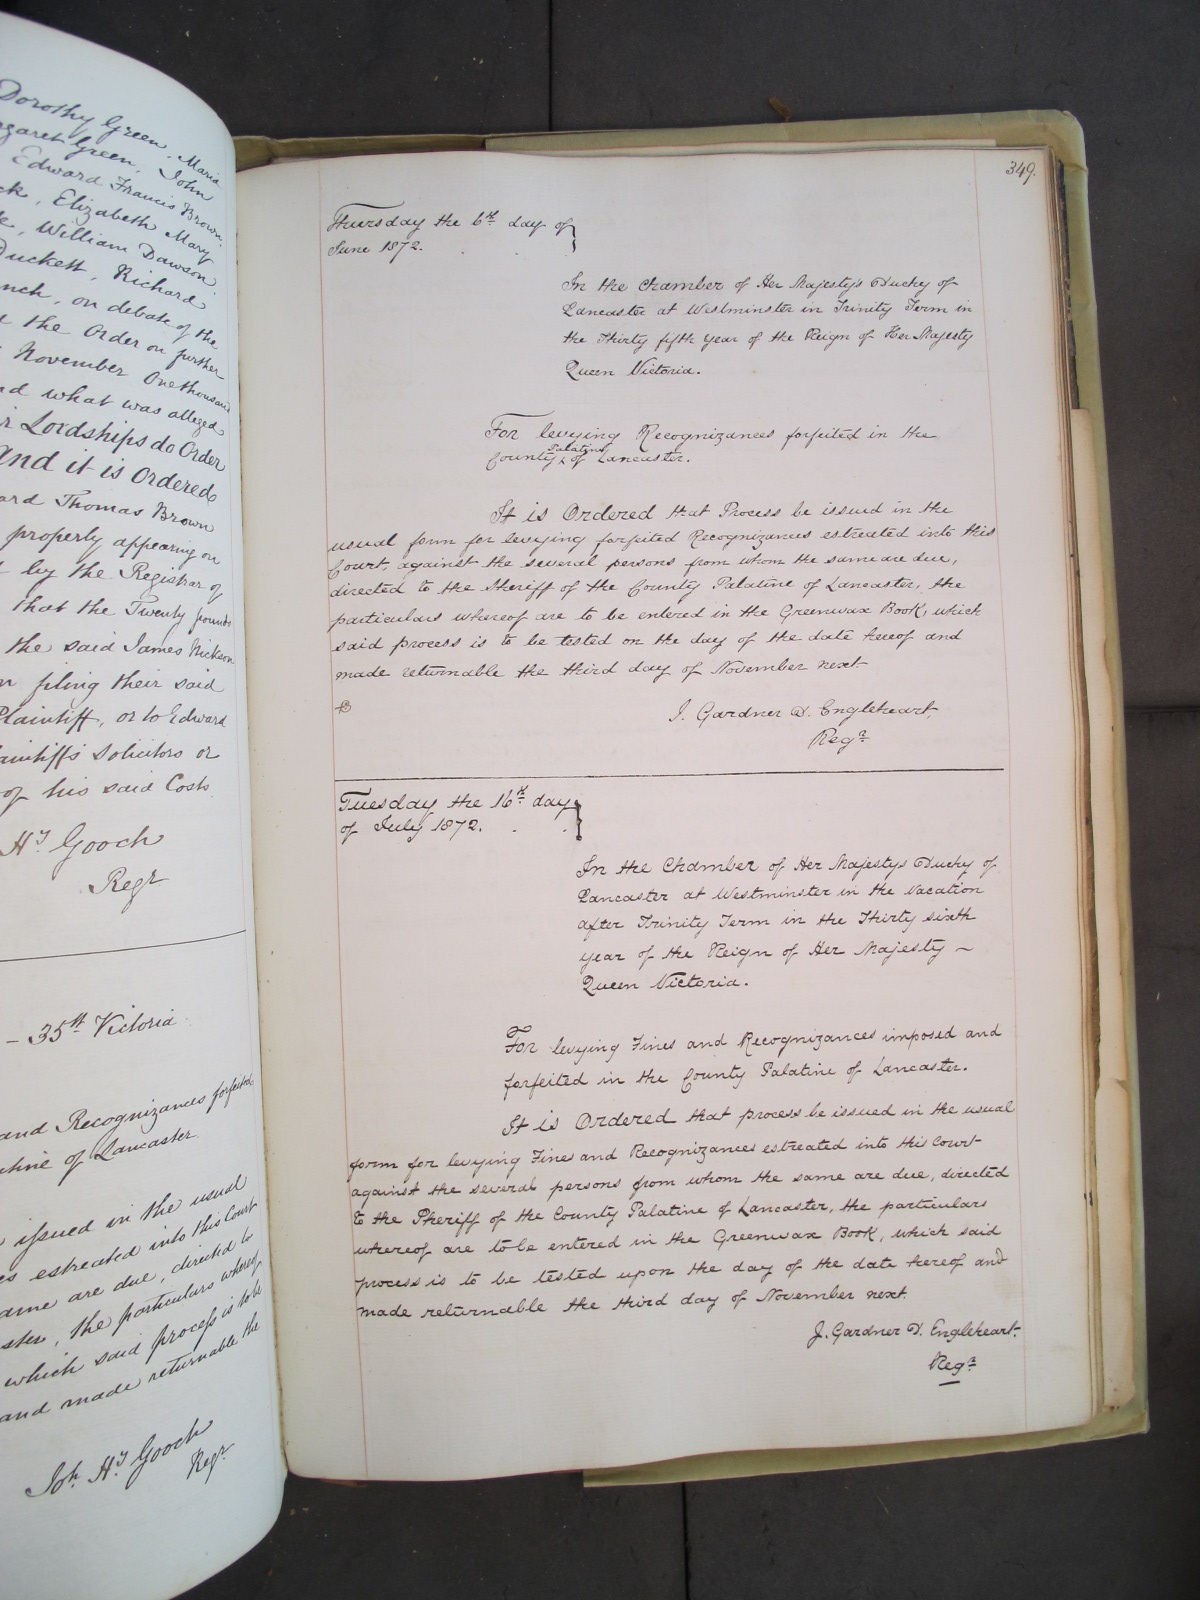 Dorothy Green, Maria
Margaret Green, John
Edward Francis Brown,
Elizabeth Mary
William Dawson
Duckett, Richard
on debate of the
the Order on further
November One thousand
and what was alleged
Lordships do Order
and it is Ordered
Thomas Brown
properly appearing on
by the Registrar of
that the Twenty pounds
the said James Nickson
filing their said
Plaintiff, or to Edward
Plaintiffs Solicitors or
of his said Costs
Hy Gooch
Regr
- 35th Victoria
and Recognizances forfeited
of Lancaster.
issued in the usual
estreated into this Court
same are due, directed to
the particulars whereof
which said process is to be
and made returnable the
Joh. Hy Gooch
Regr.
349.
Thursday the 6th day of }
June 1872.
In the Chamber of Her Majesty's Duchy of
Lancaster at Westminster in Trinity Term in
the Thirty fifth year of the Reign of Her Majesty
Queen Victoria.
For levying Recognizances forfeited in the
County ^ Palatine of Lancaster.
It is Ordered that Process be issued in the
usual form for levying forfeited Recognizances estreated into this
Court, against the several persons from whom the same are due,
directed to the Sheriff of the County Palatine of Lancaster, the
particulars whereof are to be entered in the Greenwax Book, which
said process is to be tested on the day of the date hereof and
made returnable the third day of November next
J. Gardner D. Engleheart.
Regr
Tuesday the 16th day }
of July 1872. . .
In the Chamber of Her Majestys Duchy of
Lancaster at Westminster in the Vacation
after Trinity Term in the Thirty sixth
year of the Reign of Her Majesty -
Queen Victoria.
For levying Fines and Recognizances imposed and
forfeited in the County Palatine of Lancaster.
It is Ordered that process be issued in the usual
form for levying Fines and Recognizances estreated into this Court
against the several persons from whom the same are due, directed
to the Sheriff of the County Palatine of Lancaster, the particulars
whereof are to be entered in the Greenwax Book, which said
process is to be tested upon the day of the date hereof and
made returnable the third day of November next.
J. Gardner D. Engleheart.
Regr